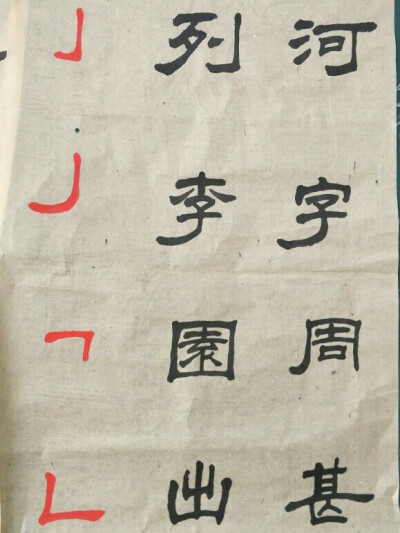 列 河
李 字
園 周
出 甚